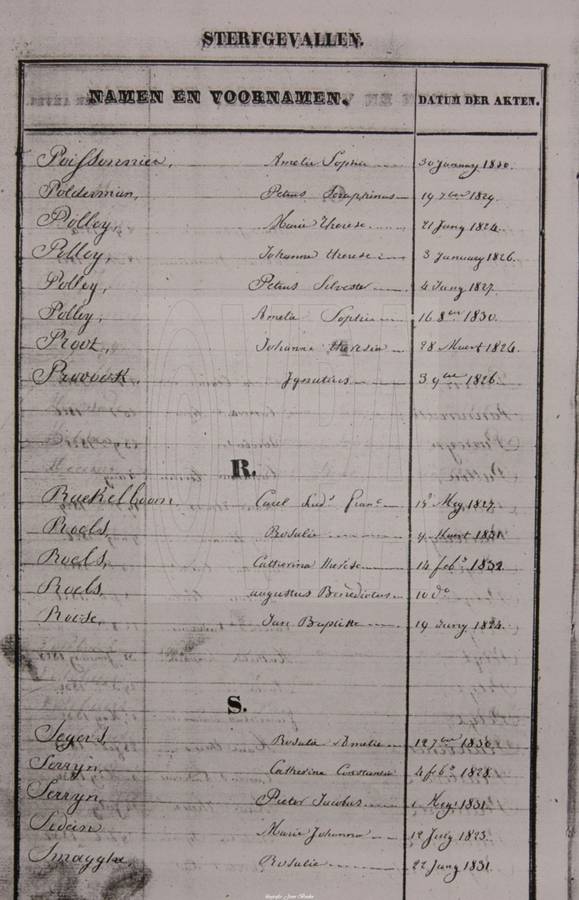 STERFGEVALLEN.
NAMEN EN VOORNAMEN. DATUM DER AKTEN.
Poissonnier, Amelie Sophie 30 January 1830.
Polderman, Petrus Seraphinus 19 7ber 1829.
Polley, Marie Therese 21 Juny 1824.
Polley, Johanna Therese 3 January 1826.
Polley, Petrus Silvester 4 Juny 1827.
Polley, Amelie Sophie 16 8ber 1830.
Proot, Johanna Theresia 28 Maart 1826.
Provoost, Ignatius 3 9ber 1826.
R.
Raekelboom, Carel Lud. Franc. 15 Mey 1827.
Roels, Rosalie 9 Maart 1831.
Roels, Catherina Therese 14 feb. 1832.
Roels, Augustus Benedictus 10 do
Roose, Jan Baptiste 19 Juny 1824.
S.
Segers, Rosalie Amelie 12 7ber 1830.
Serryn, Catherina Constantia 4 feb. 1828.
Serryn, Pieter Jacobus 1 Mey 1831.
Sidein Marie Johanna 12 July 1823.
Smagghe, Rosalie 22 Juny 1831.